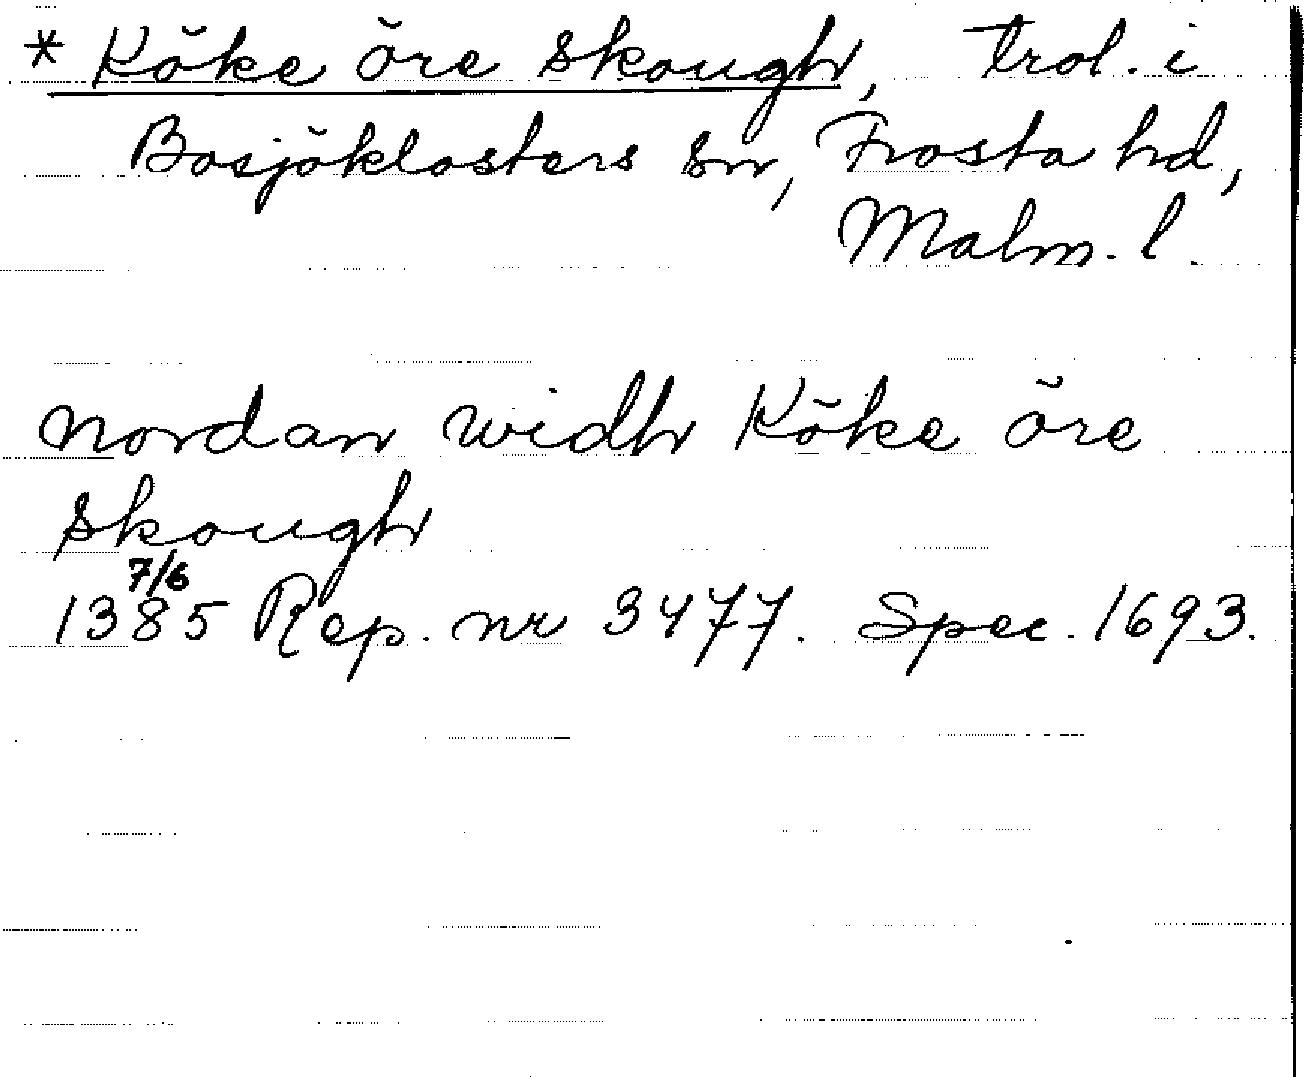 * Köke öre skough, trol. i
Bosjöklosters sn, Frosta hd,
Malm. l.
nordan widh Köke öre
skough
7/6
1385 Rep. nr 3477. Spec. 1693.